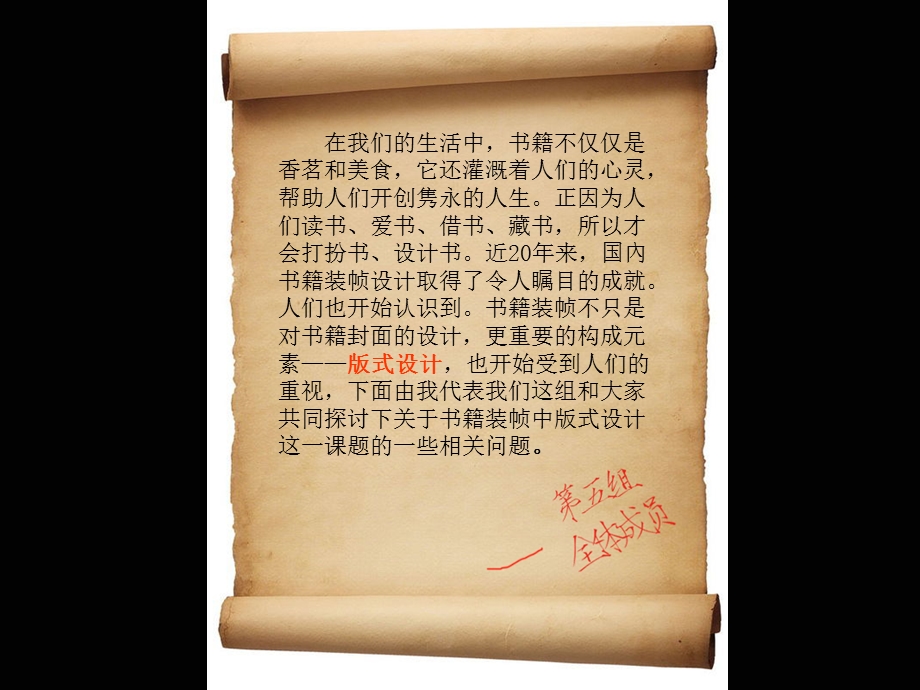 在我们的生活中，书籍不仅仅是
香茗和美食，它还灌溉着人们的心灵，
帮助人们开创隽永的人生。正因为人
们读书、爱书、借书、藏书，所以才
会打扮书、设计书。近20年来，国内
书籍装帧设计取得了令人瞩目的成就。
人们也开始认识到。书籍装帧不只是
对书籍封面的设计，更重要的构成元
素——版式设计，也开始受到人们的
重视，下面由我代表我们这组和大家
共同探讨下关于书籍装帧中版式设计
这一课题的一些相关问题。
第五组
— 全体成员